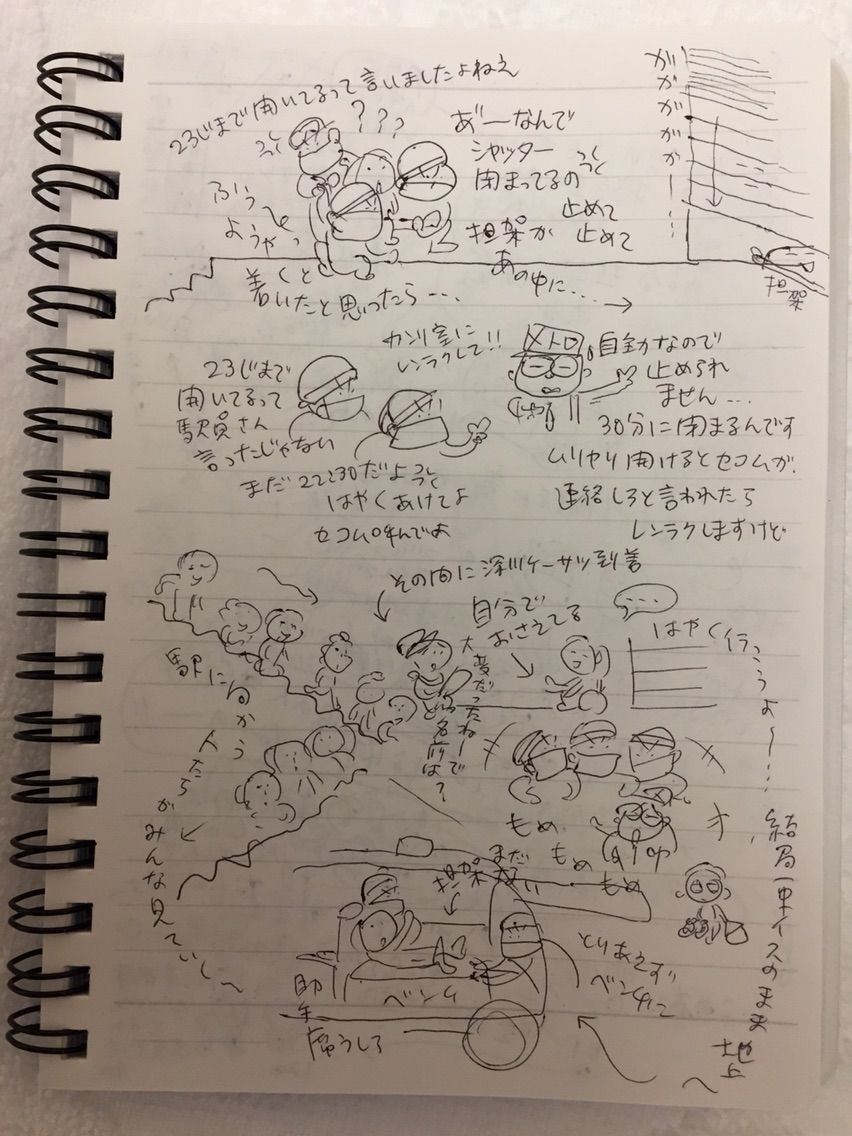 23じまで開いてるって言いましたよねえ
???
ふぅ〜
ようやっ
着くと
着いたと思ったら…
あ゛ーなんで
シャッター
閉まってるの
担架が
あの中に…
止めて
止めて
ガ
ガ
ガ
ガ
ガー…
担架
23じまで
開いてるって
駅員さん
言ったじゃない
まだ22:30だよ
はやくあけてよ
セコム呼んでよ
カンリ室に
レンラクして!!
メトロ
自動なので
止められ
ません…
30分に閉まるんです
ムリヤリ開けるとセコムが
連絡しろと言われたら
レンラクしますけど
その間に深川ケーサツ到着
自分で
おさえてる
…
はやく行こうよ〜…
大変だったねーで
名前は?
駅に向かう
人たちがみんな見ていく〜
もめ
もめ
もめ
結局車イスのまま
地上
〜
まだ
担架
ベンチ
助手
席うしろ
とりあえず
ベンチにて